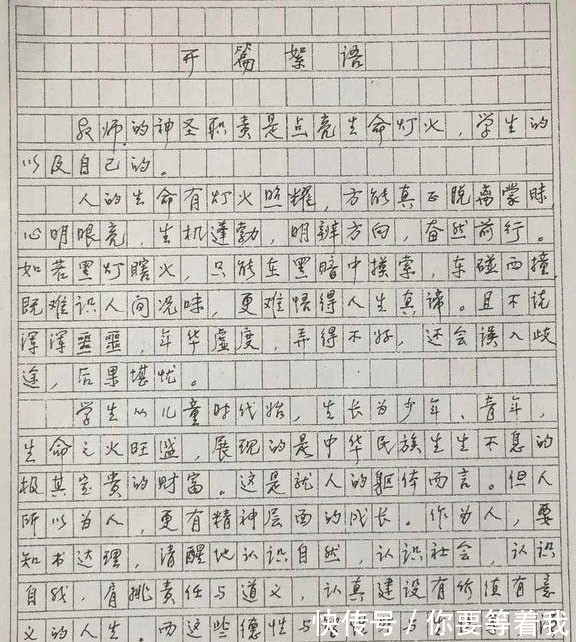 开篇絮语
教师的神圣职责是点亮生命灯火，学生的
以及自己的。
人的生命有灯火照耀，方能真正脱离蒙昧
心明眼亮，生机蓬勃，明辨方向，奋然前行。
如若黑灯瞎火，只能在黑暗中摸索，东碰西撞，
既难识人间况味，更难悟得人生真谛。且不说
浑浑噩噩，年华虚度，弄得不好，还会误入歧
途，后果堪忧。
学生从儿童时代始，生长为少年、青年，
生命之火旺盛，展现的是中华民族生生不息的
极其宝贵的财富。这是就人的躯体而言。但人
所以为人，更有精神层面的成长。作为人，要
知书达理，清醒地认识自然，认识社会，认识
自我，肩挑责任与道义，认真建设有价值有意
义的人生。而这些德性与
快传号/你要等着我